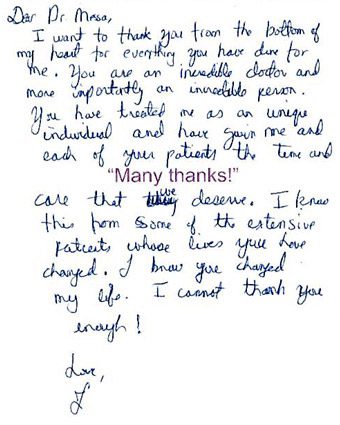 Dear Dr. Mesa,
I want to thank you from the bottom of
my heart for everything you have done for
me. You are an incredible doctor and
more importantly an incredible person.
You have treated me as an unique
individual and have given me and
each of your patients the time and
"Many thanks!"
care that we deserve. I know
this from some of the extensive
patients whose lives you have
changed. I know you changed
my life. I cannot thank you
enough!
Love,